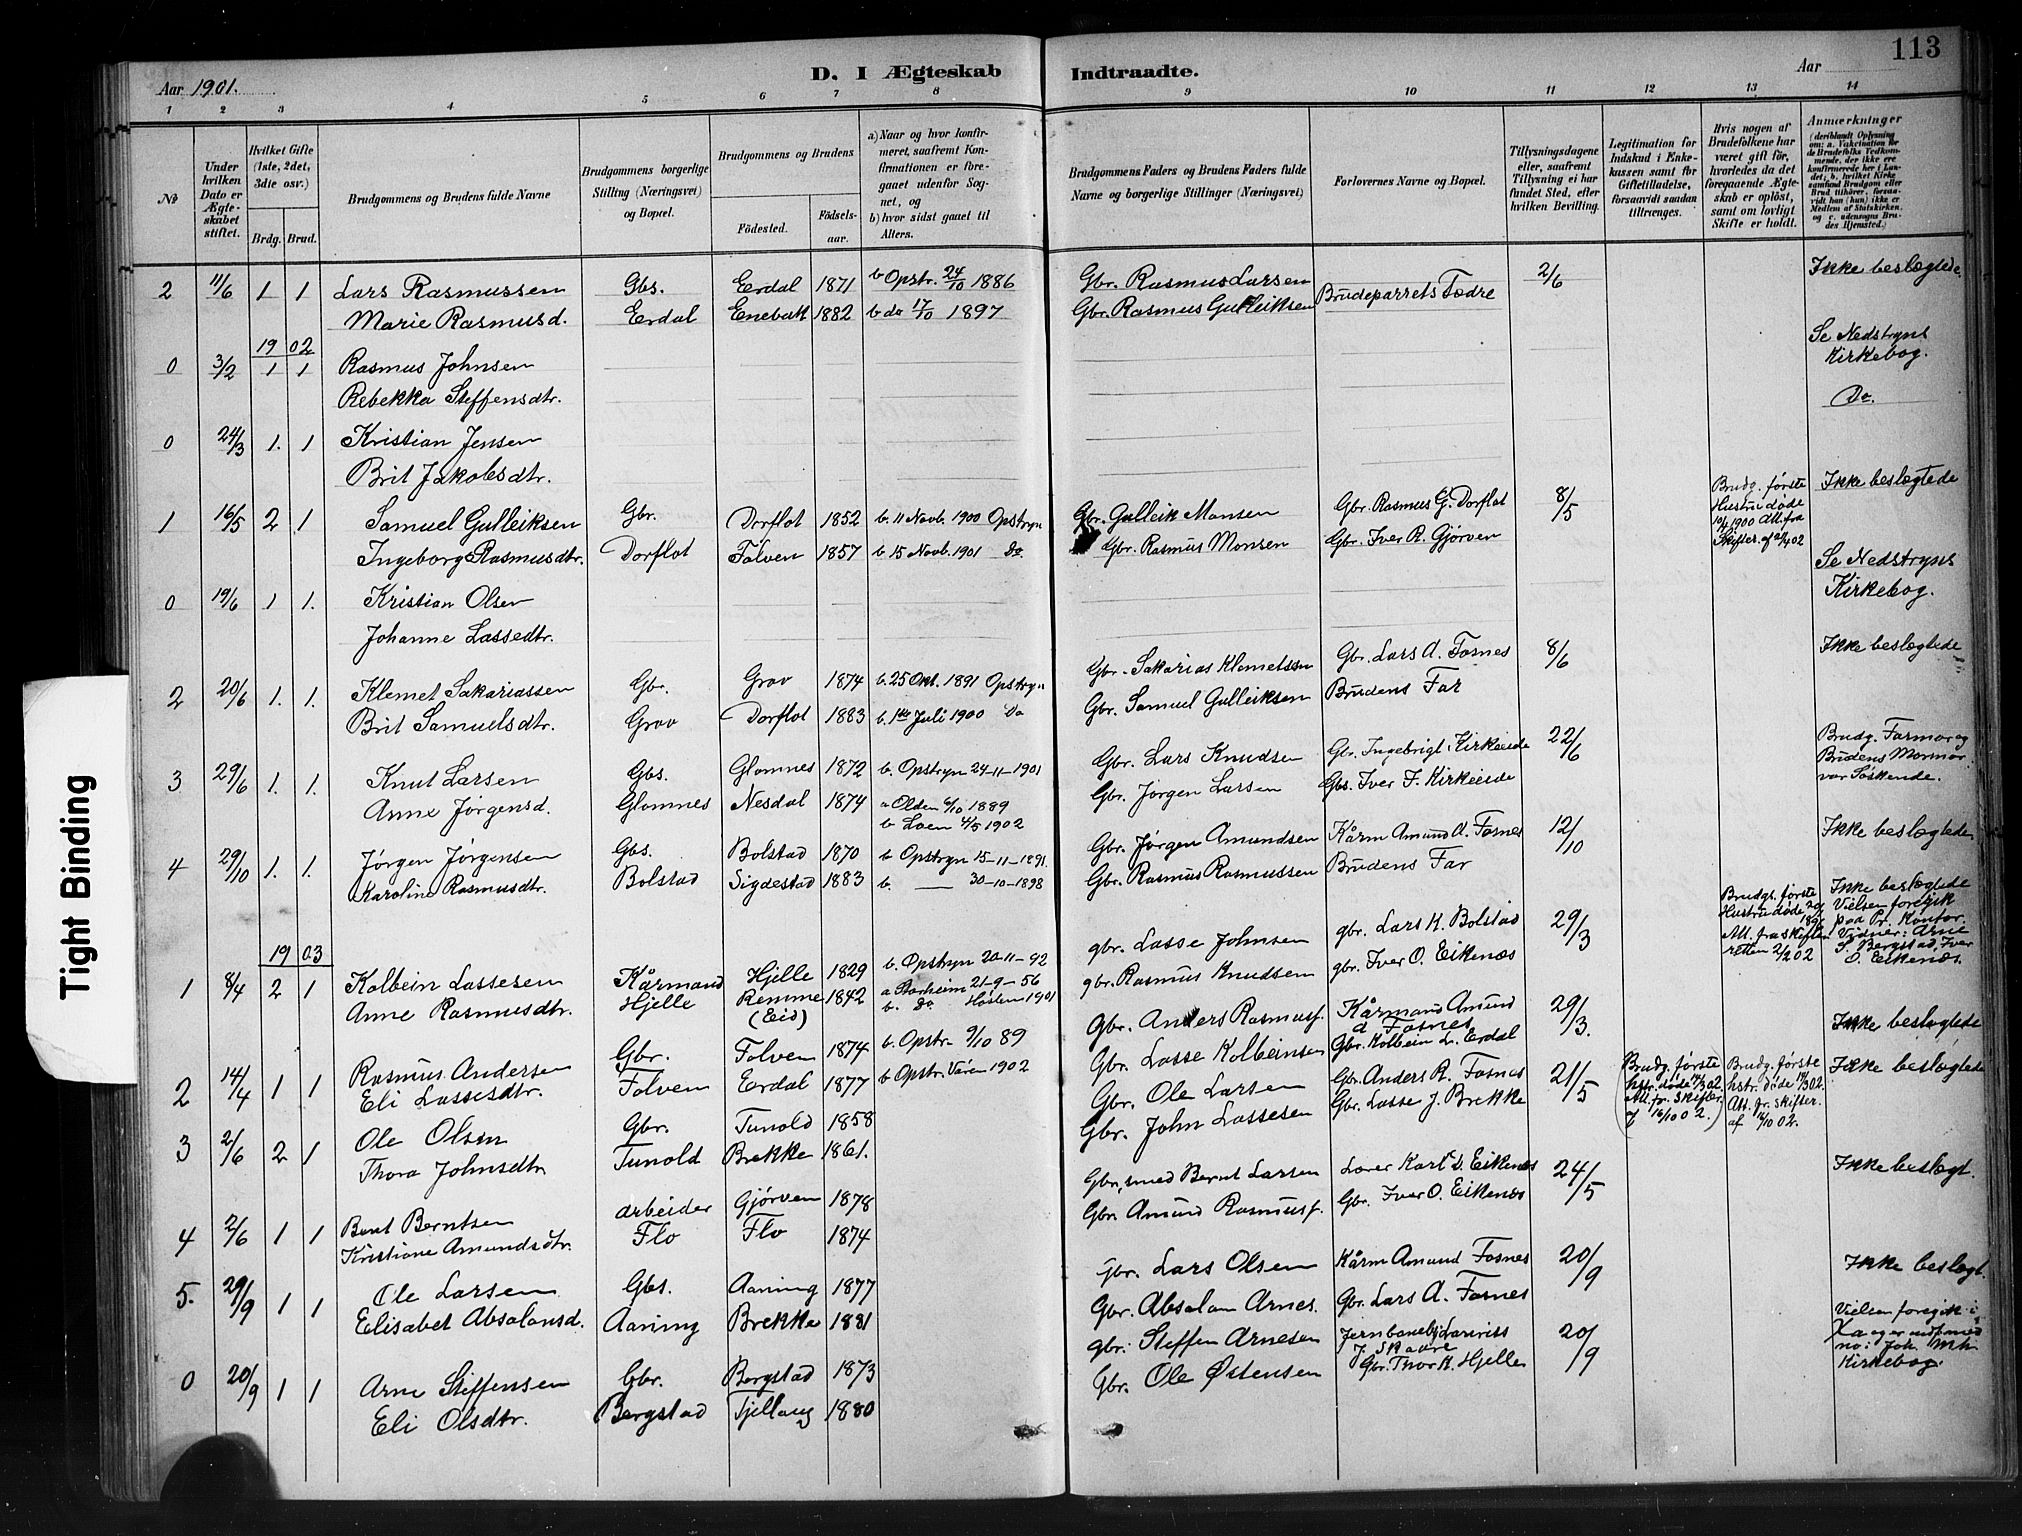 113
Aar 1901.
D. I Ægteskab Indtraadte.
Aar
1 2 3 4 5 6 7 8 9 10 11 12 13 14
№
Under hvilken Dato er Ægteskabet stiftet.
Hvilket Gifte (1ste, 2det, 3die osv.)
Brdg. Brud.
Brudgommens og Brudens fulde Navne
Brudgommens borgerlige Stilling (Næringsvei) og Bopæl.
Brudgommens og Brudens
Födested.
Födselsaar.
a) Naar og hvor konfirmeret, saafremt Konfirmationen er foregaaet udenfor Sognet, og
b) hvor sidst gaaet til Alters.
Brudgommens Faders og Brudens Faders fulde Navne og borgerlige Stillinger (Næringsvei)
Forlovernes Navne og Bopæl.
Tillysningsdagene eller, saafremt Tillysning ei har fundet Sted, efter hvilken Bevilling.
Legitimation for Indskud i Enkekassen samt for Giftetilladelse, forsaavidt saadan tiltrænges.
Hvis nogen af Brudefolkene har været gift før, hvorledes da det foregaaende Ægteskab er oplöst, samt om lovligt Skifte er holdt.
Anmærkninger
(deriblandt Oplysning om: a. Vaccination for de Brudefolks Vedkommende, der ikke ere konfirmerede her i Landet; b. hvilket Kirkesamfund Brudgom eller Brud tilhörer, forsaavidt han (hun) ikke er Medlem af Statskirken, og c. udensogns Brudes Hjemsted.)
2 11/6 1 1 Lars Rasmussen Gbs. Erdal 1871 b Opstr. 24/10 1886 Gbr. Rasmus Larsen Brudeparrets Fædre 2/6 Ikke beslægtede
Marie Rasmusd. Erdal Enebak 1882 b do 17/10 1897 Gbr. Rasmus Gulleiksen
1902
0 3/2 1 1 Rasmus Johnsen Se Nedstryns Kirkebog.
Rebekka Steffensdtr.
0 24/3 1. 1 Kristian Jensen Do.
Brit Jakobsdtr.
1 16/5 2 1 Samuel Gulleiksen Gbr. Dorflot 1852 b. 11 Novb. 1900 Opstryn Gbr. Gulleik Monsen Gbr. Rasmus G. Dorflot 8/5 Brudg. første Hustru døde 1900 Att. fra Skifter. af 02 Ikke beslægtede
Ingeborg Rasmusdtr. Dorflot Folven 1857 b 15 Novb. 1901 Do Gbr. Rasmus Monsen Gbr. Iver R. Gjørven
0 19/6 1 1. Kristian Olsen Se Nedstryns Kirkebog.
Johanne Lassedtr.
2 20/6 1. 1. Klemet Sakariassen Gbr. Grov 1874 b. 25 Okt. 1891 Opstryn Gbr. Sakarias Klemetssn Gbr. Lars A. Fosnes 8/6 Ikke beslægtede
Brit Samuelsdtr. Grov Dorflot 1883 b. 1ste Juli 1900 Do Gbr. Samuel Gulleiksen Brudens Far
3 29/6 1. 1. Knut Larsen Gbs. Glomnes 1872 b. Opstryn 24-11-1901 Gbr. Lars Knudsen Gbr. Ingebrigt Kirkeeide 22/6 Brudg. Farmor og Brudens Mormor var Søskende.
Anne Jørgensd. Glomnes Nesdal 1874 a Olden 6/10 1889 b Loen 4/5 1902 Gbr. Jørgen Larsen Gbs. Iver F. Kirkeeide
4 29/10 1. 1. Jørgen Jørgensen Gbs. Bolstad 1870 b Opstryn 15-11-1891. Gbr. Jørgen Amundsen Kårm Amund A. Fosnes 12/10 Ikke beslægtede
Karoline Rasmusdtr. Bolstad Sigdestad 1883 b. — 30-10-1898 Gbr. Rasmus Rasmussen Brudens Far
1903
1 8/4 2 1 Kolbein Lassesen Kårmand Hjelle 1829 b. Opstryn 20-11-92 gbr. Lasse Johnsen gbr. Lars K. Bolstad 29/3 Brudgs. første Hustru døde Att. fra skifteretten 02 Ikke beslægtede Vielsen foregik paa Pr. Kontor. Vidner: Arne S. Bergstad, Iver O. Eikenæs.
Anne Rasmusdtr. Hjelle Remme (Eid) 1842 a Starheim 21-9-56 b. Do Høsten 1901 gbr. Rasmus Knudsen gbr. Iver O. Eikenæs
2 14/4 1 1 Rasmus Andersen Gbr. Folven 1874 b. Opstr. 9/10 89 Gbr. Anders Rasmusf. Kårmand Amund A Fosnes 29/3. Ikke beslægtede
Eli Lassesdtr. Folven Erdal 1877 b Opstr. Våren 1902 Gbr. Lasse Kolbeinsen Gbr. Kolbein L. Erdal
3 2/6 2 1 Ole Olsen Gbr. Tunold 1858 Gbr. Ole Larsen Gbr. Anders R. Fosnes 21/5 (Brudg. første hstr. døde 14/3 02. Att. fr. Skifter. af 16/10 02.) Brudg. første hstr. døde 14/3 02. Att. fr. skifter. af 16/10 02. Ikke beslægtede
Thora Johnsdtr Tunold Brekke 1861. Gbr. John Lassesen Gbr. Lasse J. Brekke
4 2/6 1 1 Bernt Berntsen arbeider Gjørven 1878 Gbr, smed Bernt Larsen Lærer Karl D. Eikenæs 24/5 Ikke beslægt.
Kristiane Amundsdtr. Flo Flo 1874 Gbr. Amund Rasmusf. Gbr. Iver O. Eikenæs
5. 29/9 1 1 Ole Larsen Gbs. Aaning 1877 Gbr. Lars Olsen Kårm Amund Fosnes 20/9 Ikke beslægt.
Elisabet Absalonsd. Aaning Brekke 1881 Gbr. Absalom Arnes. Gbr. Lars A. Fosnes
0 20/9 1 1 Arne Steffensen Gbr. Bergstad 1873 gbr. Steffen Arnesen J. Skaare 20/9 Vielsen foregik i Xa og er indf. med no i Joh. Mkh Kirkebog.
Eli Olsdtr. Bergstad Tjellaug 1880 Gbr. Ole Østensen Gbr. Thor K. Hjelle
Tight Binding